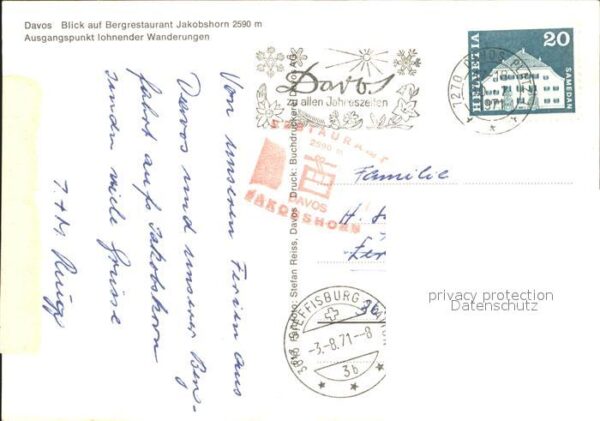 Davos Blick auf Bergrestaurant Jakobshorn 2590 m
Ausgangspunkt lohnender Wanderungen
Von unserem Ferien aus
Davos und unserer Ben-
fahrt aufs Jakobshorn
senden viele Grüsse
Davos
zu allen Jahreszeiten
HELVETIA
20
SAMEDAN
7270
1971
RESTAURANT
2590 m
DAVOS
JAKOBSHORN
Stefan Reiss, Davos Druck: Buchdruckerei Davos AG
Familie
H.
36
STEFFISBURG STATION
-3.-8.71-8
3b
privacy protection
Datenschutz